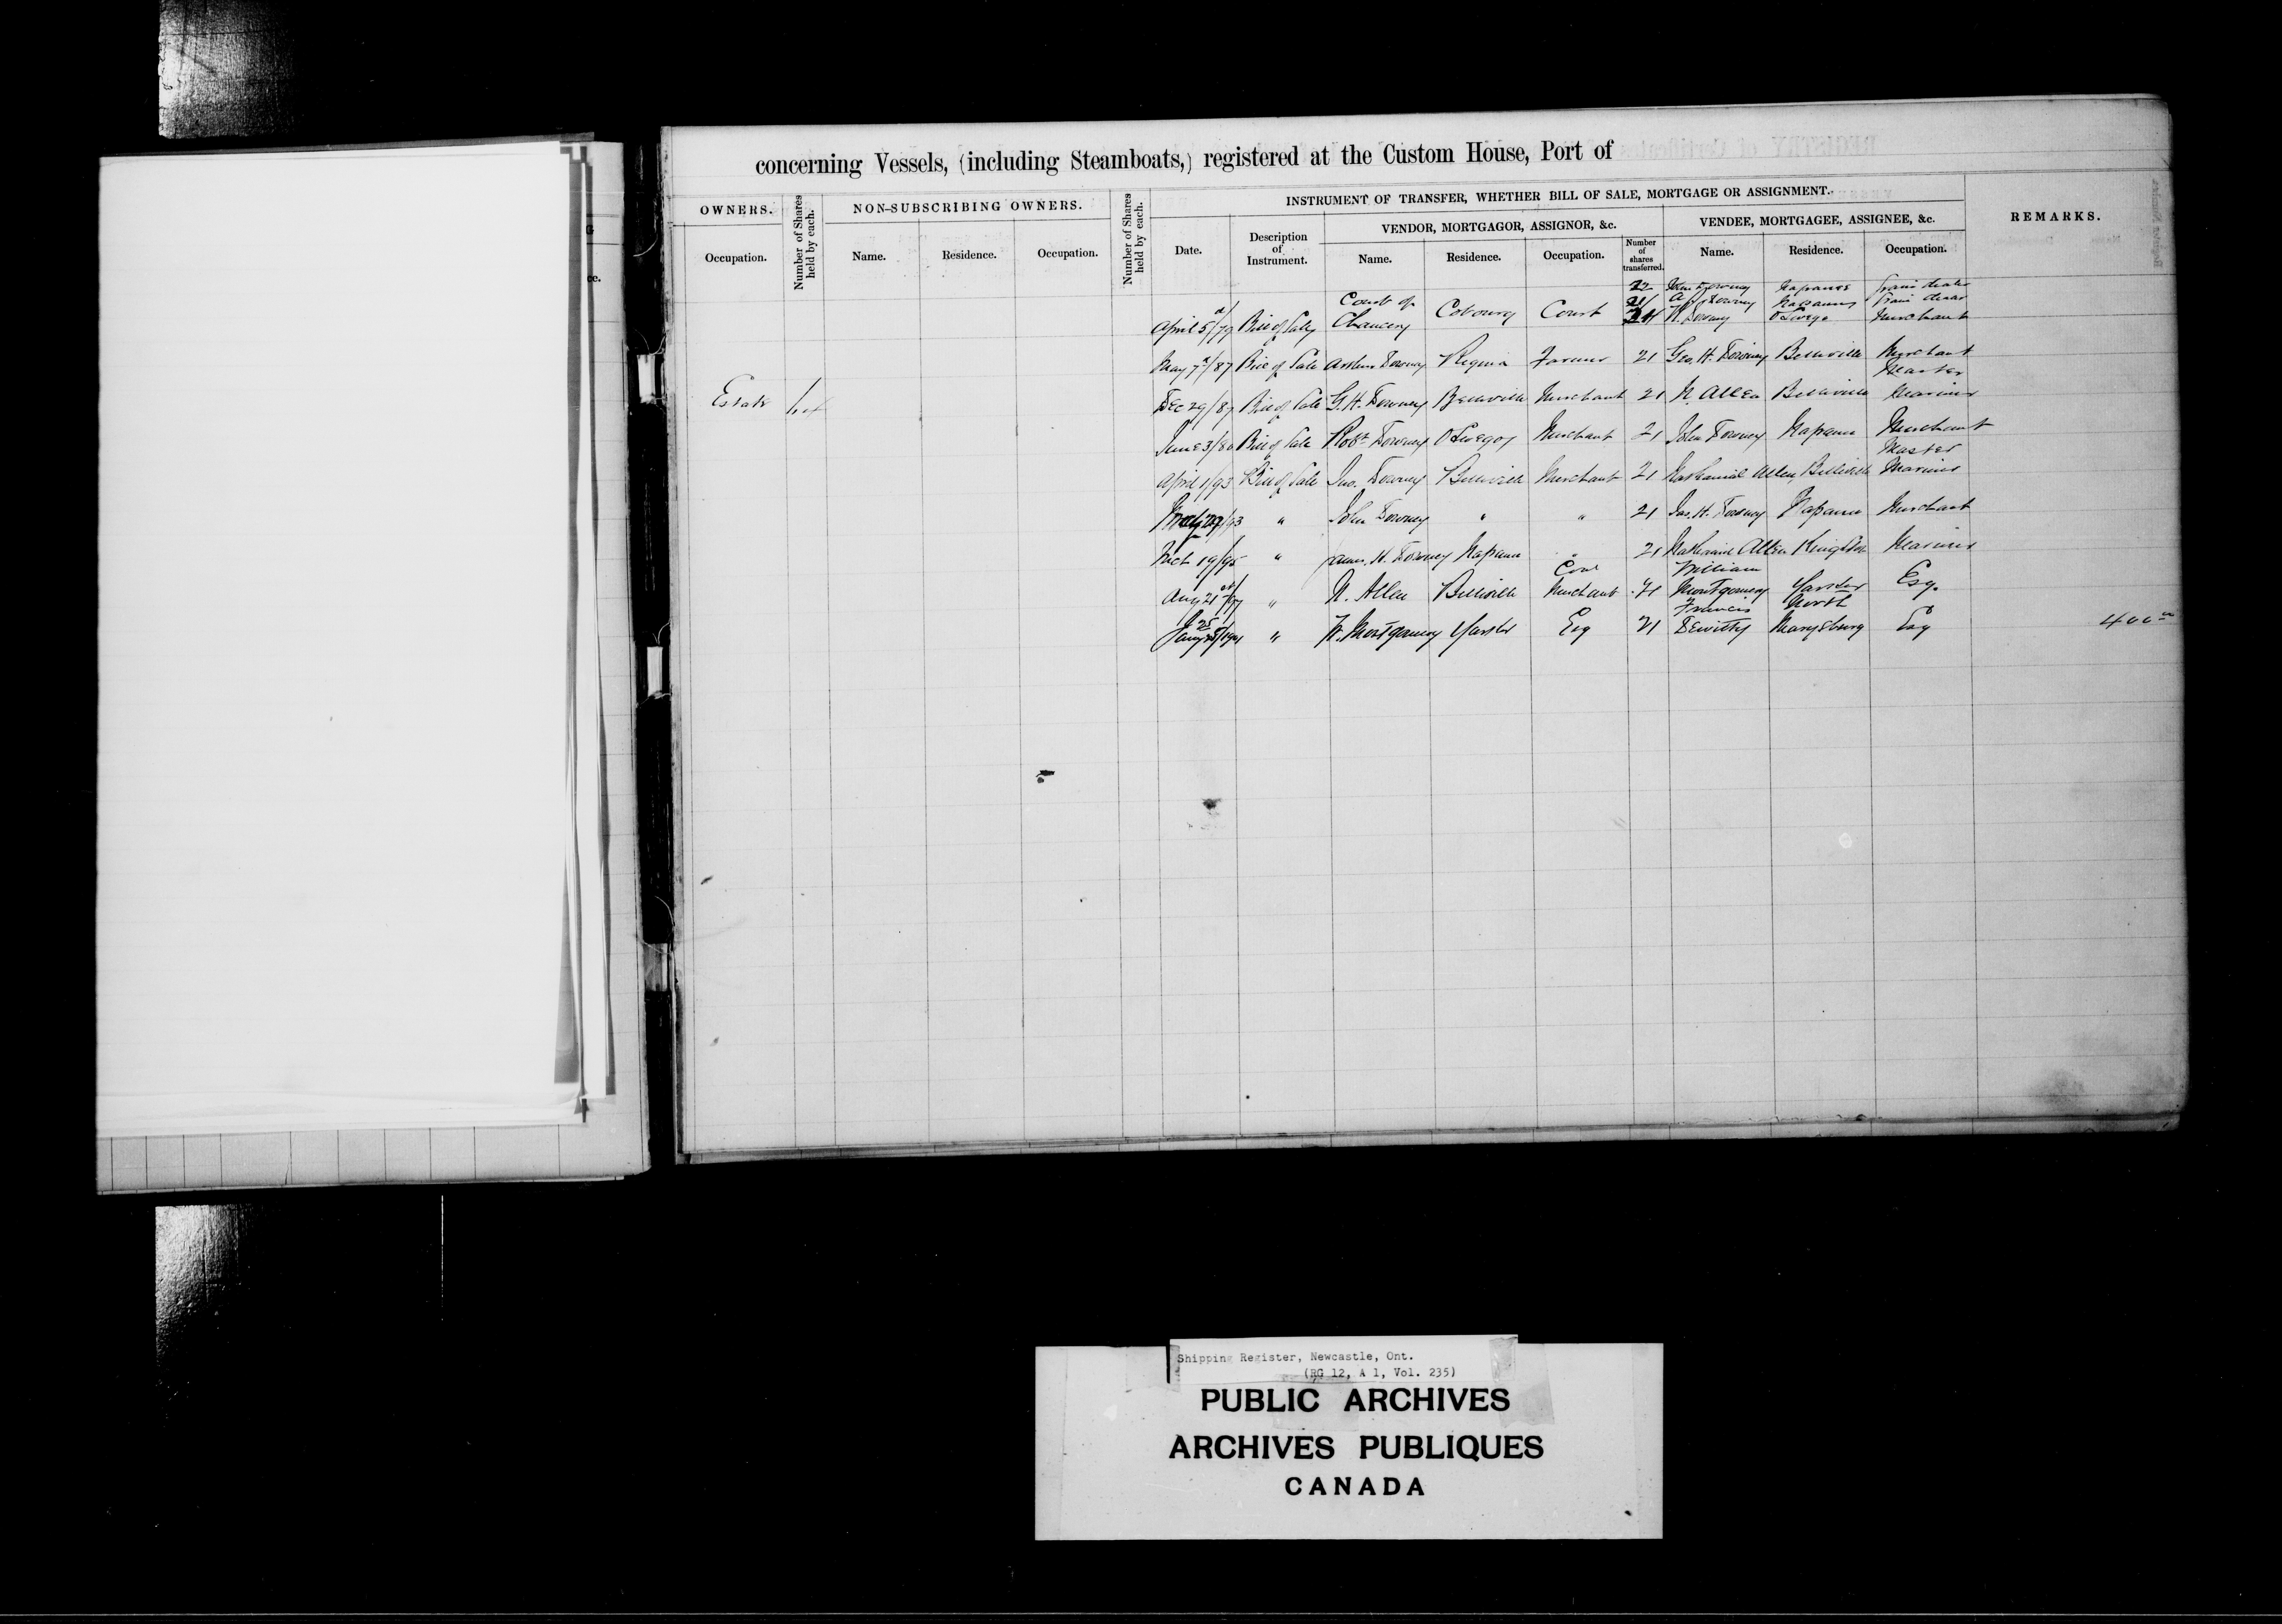 concerning Vessels, (including Steamboats,) registered at the Custom House, Port of
OWNERS. Number of Shares held by each. NON-SUBSCRIBING OWNERS. Number of Shares held by each. INSTRUMENT OF TRANSFER, WHETHER BILL OF SALE, MORTGAGE OR ASSIGNMENT. REMARKS.
VENDOR, MORTGAGOR, ASSIGNOR, &c. VENDEE, MORTGAGEE, ASSIGNEE, &c.
Occupation. Name. Residence. Occupation. Date. Description of Instrument. Name. Residence. Occupation. Number of shares transferred. Name. Residence. Occupation.
22 John Downey Napanee Grain dealer
Court of 21 A. Downey Napanee Grain dealer
April 5/79 Bill of Sale Chancery Cobourg Court 21 R. Downey Oswego Merchant
May 7/87 Bill of Sale Arthur Downey Regina Farmer 21 Geo. H. Downey Belleville Merchant
Master
Estate Dec 29/87 Bill of Sale G. H. Downey Belleville Merchant 21 N. Allen Belleville Mariner
June 3/80 Bill of Sale Robt Downey Oswego Merchant 21 John Downey Napanee Merchant
Master
April 1/93 Bill of Sale Jno. Downey Belleville Merchant 21 Nathaniel Allen Belleville Mariner
/93 " John Downey " " 21 Jas. H. Downey Napanee Merchant
19/95 " James H. Downey Napanee " 21 Nathaniel Allen Kingston Mariner
Coal William
Aug 21st/97 " N. Allen Belleville Merchant 41 Montgomery Yarker Esq.
25 Francis North
Jany 1901 " W. Montgomery Yarker Esq 21 Dewitty Marysburg Esq 400 00
Shipping Register, Newcastle, Ont.
(RG 12, A 1, Vol. 235)
PUBLIC ARCHIVES
ARCHIVES PUBLIQUES
CANADA